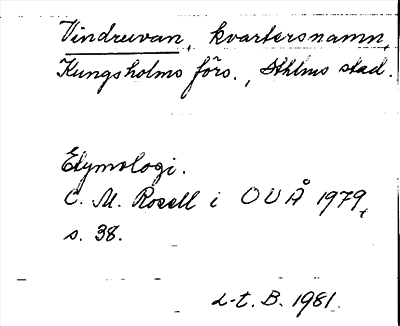 Vindruvan, kvartersnamn,
Kungsholms förs., Sthlms stad.
Etymologi.
C. M. Rosell i OUÅ 1979,
s. 38.
L-t. B. 1981.